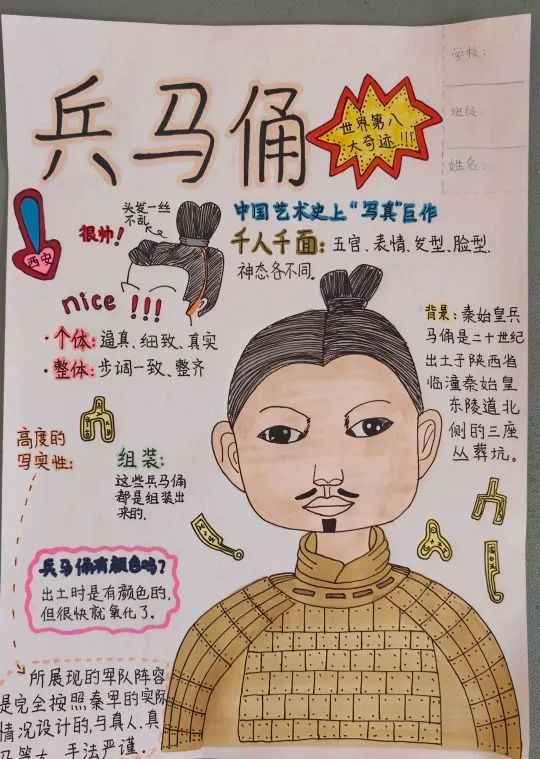 兵马俑
世界第八
大奇迹!!!
学校：
班级：
姓名：
西安
很帅!
头发一丝
不乱
nice!!!
中国艺术史上“写真”巨作
千人千面：五官、表情、发型、脸型、
神态各不同。
·个体：逼真、细致、真实
·整体：步调一致、整齐
背景：秦始皇兵
马俑是二十世纪
出土于陕西省
临潼秦始皇
东陵道北
侧的三座
丛葬坑。
高度的
写实性：
组装：
这些兵马俑
都是组装出
来的.
兵马俑有颜色吗?
出土时是有颜色的,
但很快就氧化了.
所展现的军队阵容
是完全按照秦军的实际
情况设计的,与真人、真
马等大,手法严谨.